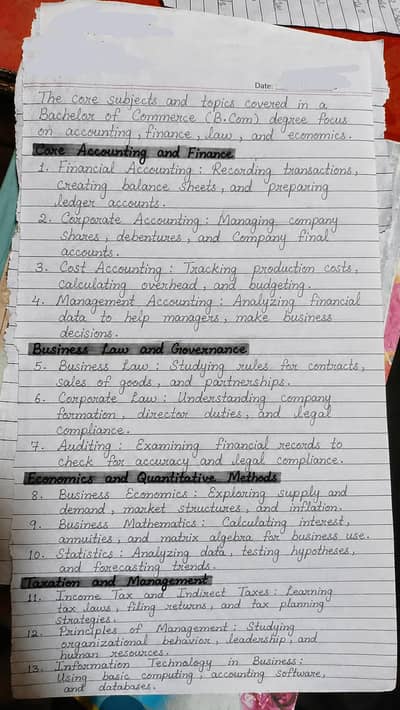 Date:
The core subjects and topics covered in a
Bachelor of Commerce (B.Com) degree focus
on accounting, finance, law, and economics.
Core Accounting and Finance
1. Financial Accounting : Recording transactions,
creating balance sheets, and preparing
ledger accounts.
2. Corporate Accounting : Managing company
shares, debentures, and Company final
accounts.
3. Cost Accounting : Tracking production costs,
calculating overhead, and budgeting.
4. Management Accounting : Analyzing financial
data to help managers, make business
decisions.
Business Law and Governance
5. Business Law : Studying rules for contracts,
sales of goods, and partnerships.
6. Corporate Law : Understanding company
formation, director duties, and legal
compliance.
7. Auditing : Examining financial records to
check for accuracy and legal compliance.
Economics and Quantitative Methods
8. Business Economics : Exploring supply and
demand, market structures, and inflation.
9. Business Mathematics : Calculating interest,
annuities, and matrix algebra for business use.
10. Statistics : Analyzing data, testing hypotheses,
and forecasting trends.
Taxation and Management
11. Income Tax and Indirect Taxes : Learning
tax laws, filing returns, and tax planning
strategies.
12. Principles of Management : Studying
organizational behavior, leadership, and
human resources.
13. Information Technology in Business :
Using basic computing, accounting software,
and databases.